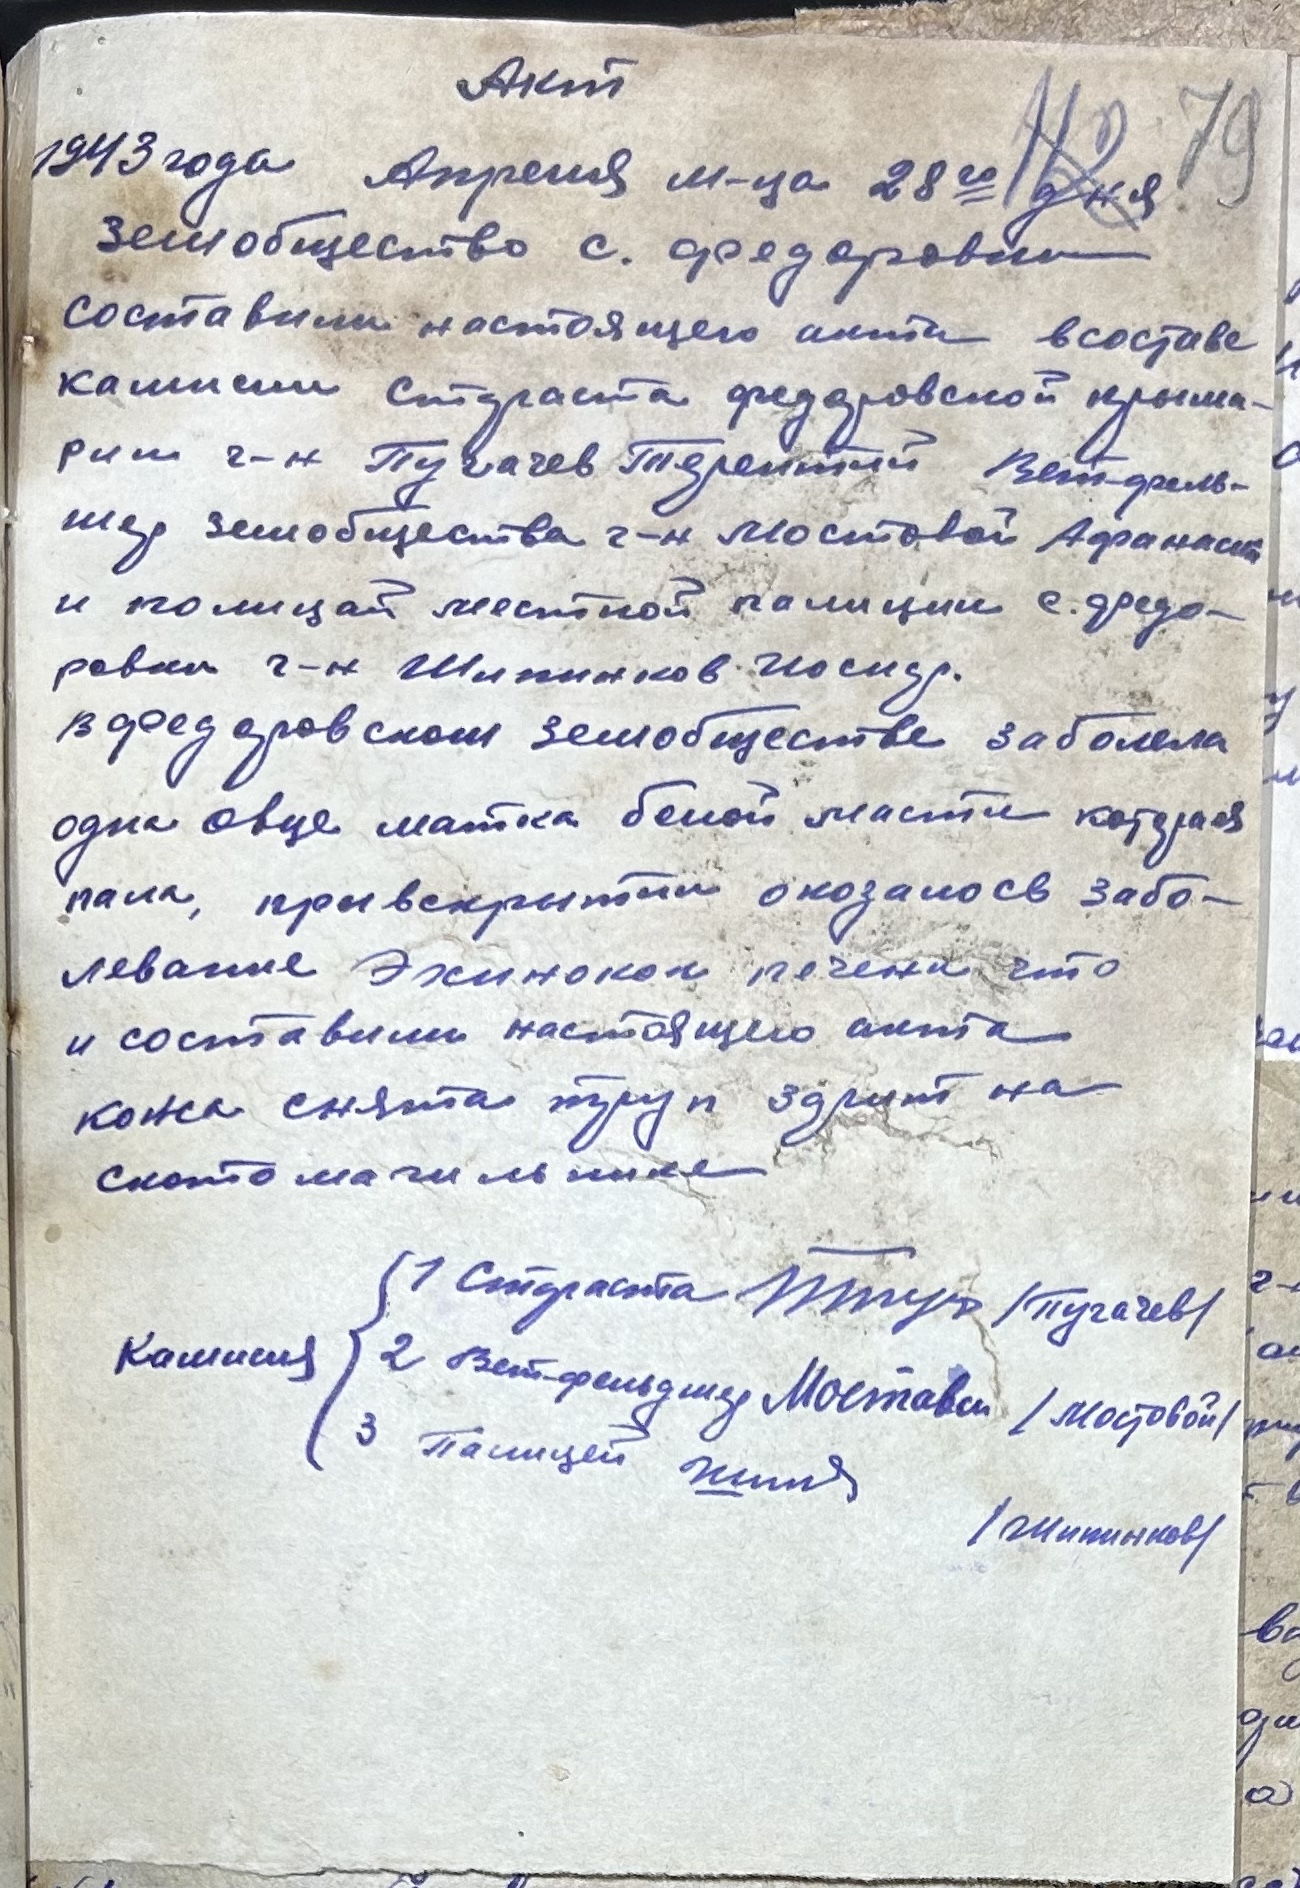 Акт
112 79
1943 года Апреля м-ца 28го дня
Земобщество с. Федоровки
составили настоящего акта в составе
камисии Старгаста федоровской
рии г-н Пугачев Терентий Ветфель-
шер земобщества г-н Мостовой Афанасий
и полицай местной палиции с. Федо-
ровки г-н Шипинков Иосиф.
в Федоровском Земобществе заболела
одна овце матка белой масти которая
пала, при вскрытии окозалось забо-
левание Эхинокок печени что
и составили настоящего акта
кожа снята труп здрит на
скотомагильнике
1 Старгаста /Пугачев/
Камисия 2 Вет-фельдшер Мостовой /Мостовой/
3 Палицей
/Шипинков/